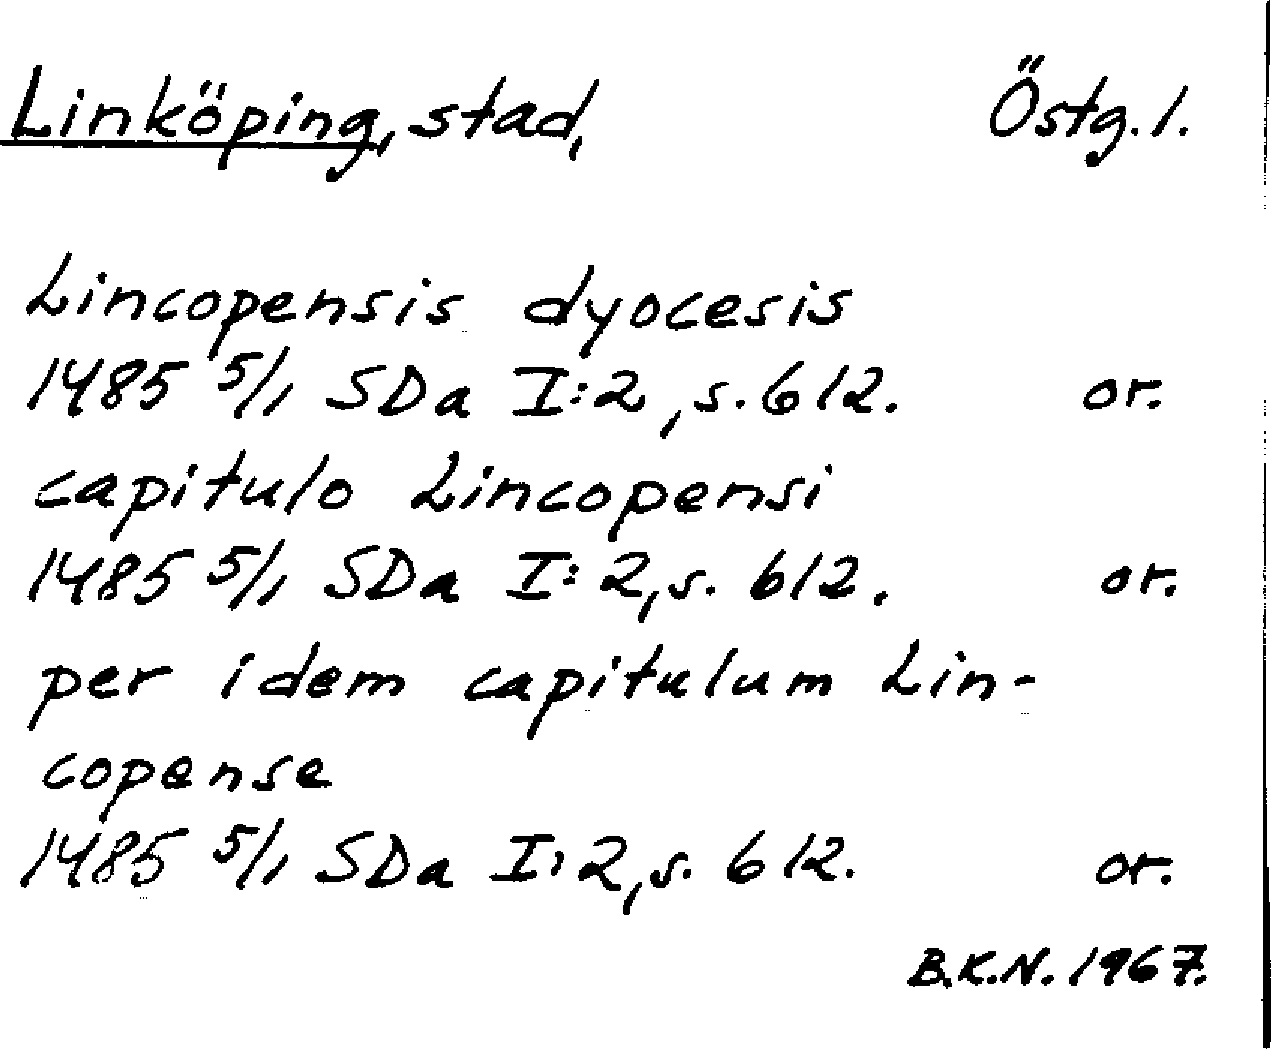 Linköping, stad, Östg. l.
Lincopensis dyocesis
1485 5/1 SDa I:2, s. 612. or.
capitulo Lincopensi
1485 5/1 SDa I:2, s. 612. or.
per idem capitulum Lin-
copense
1485 5/1 SDa I:2, s. 612. or.
B.K.N. 1967.